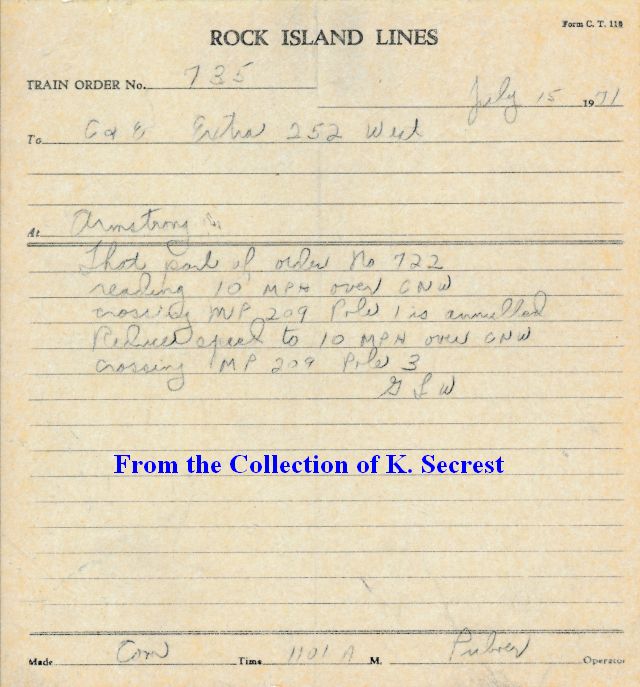 Form C. T. 110
ROCK ISLAND LINES
TRAIN ORDER No. 735
July 15 1971
To C & E Extra 252 West
At Armstrong
That part of order No 722
reading 10 MPH over CNW
crossing MP 209 Pole 1 is annulled
Reduce speed to 10 MPH over CNW
crossing MP 209 Pole 3
G L W
From the Collection of K. Secrest
Made Com Time 1101 A M. Operator